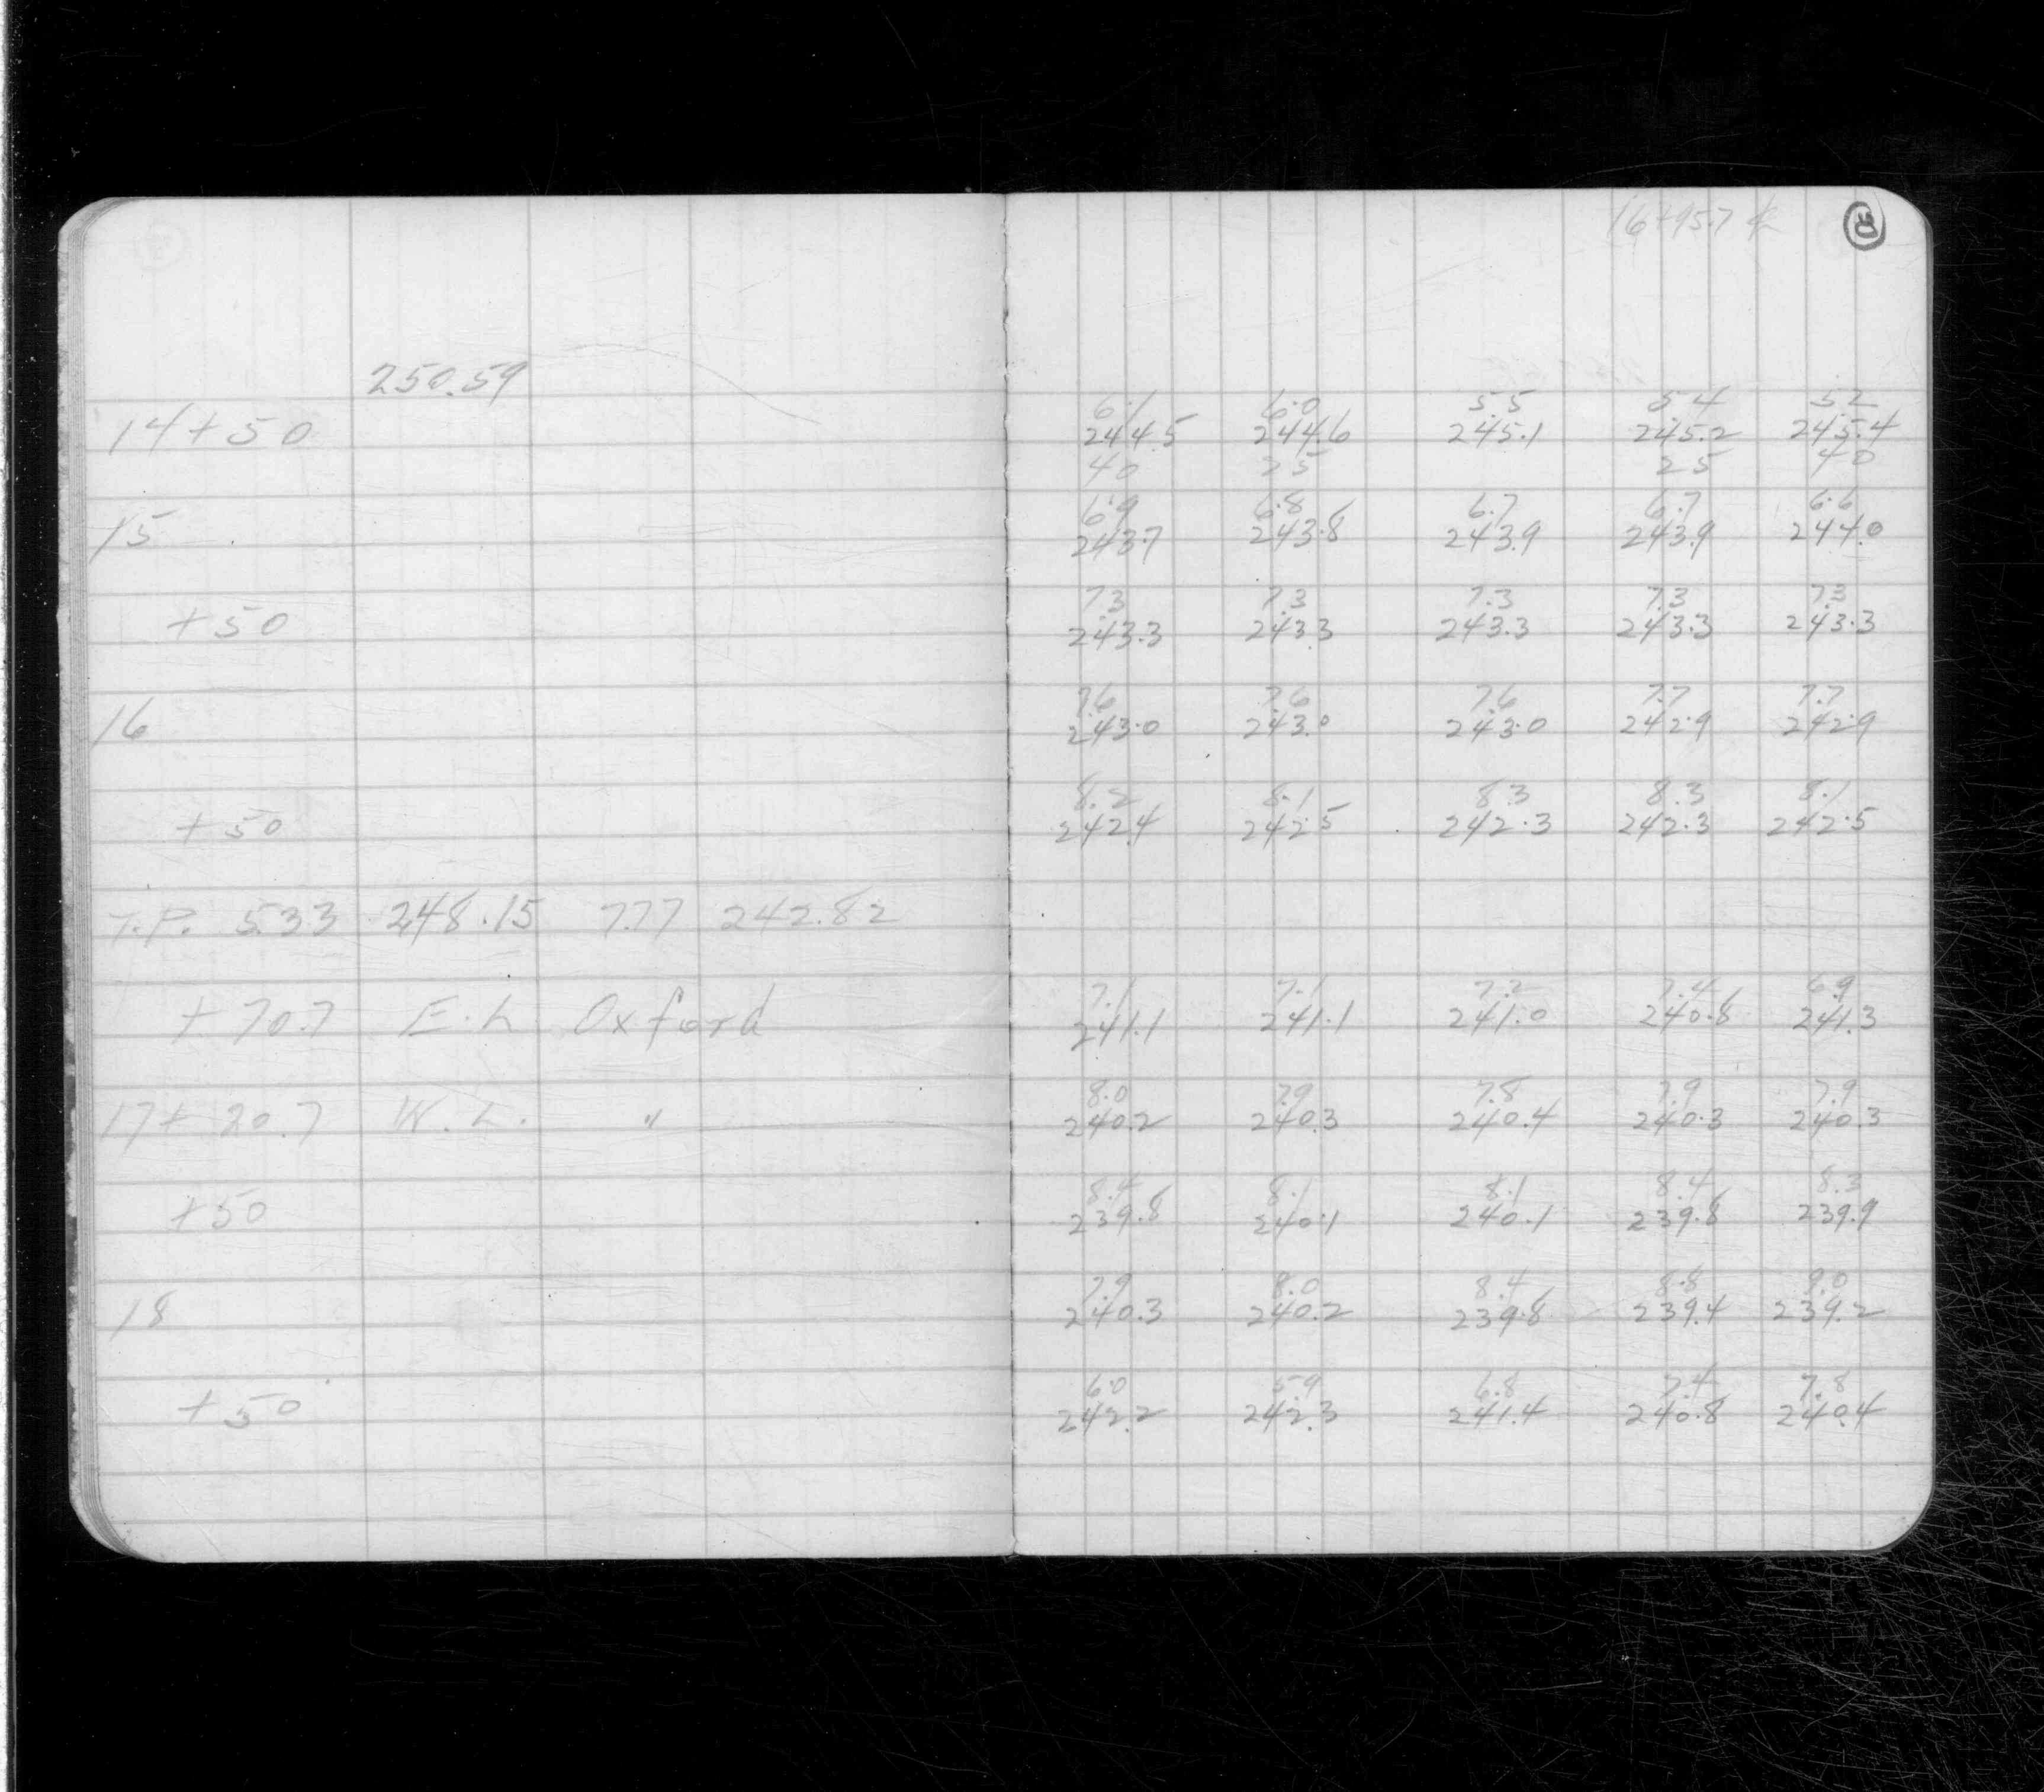 16+95.7 ⅊
250.59
6.1 6.0 5.5 5.4 5.2
14+50 244.5 244.6 245.1 245.2 245.4
40 25 25 40
6.9 6.8 6.7 6.7 6.6
15 243.7 243.8 243.9 243.9 244.0
7.3 7.3 7.3 7.3 7.3
+50 243.3 243.3 243.3 243.3 243.3
7.6 7.6 7.6 7.7 7.7
16 243.0 243.0 243.0 242.9 242.9
8.2 8.1 8.3 8.3 8.1
+50 242.4 242.5 242.3 242.3 242.5
T.P. 5.33 248.15 7.77 242.82
7.1 7.1 7.2 7.4 6.9
+70.7 E.L Oxford 241.1 241.1 241.0 240.8 241.3
8.0 7.9 7.8 7.9 7.9
17+20.7 W.L. " 240.2 240.3 240.4 240.3 240.3
8.4 8.1 8.1 8.4 8.3
+50 239.8 240.1 240.1 239.8 239.9
7.9 8.0 8.4 8.8 9.0
18 240.3 240.2 239.8 239.4 239.2
6.0 5.9 6.8 7.4 7.8
+50 242.2 242.3 241.4 240.8 240.4